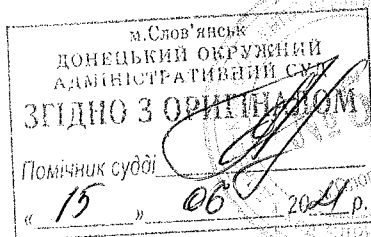 м.Слов'янськ
ДОНЕЦЬКИЙ ОКРУЖНИЙ
АДМІНІСТРАТИВНИЙ СУД
ЗГІДНО З ОРИГІНАЛОМ
Помічник судді
« 15 » 06 2021 р.